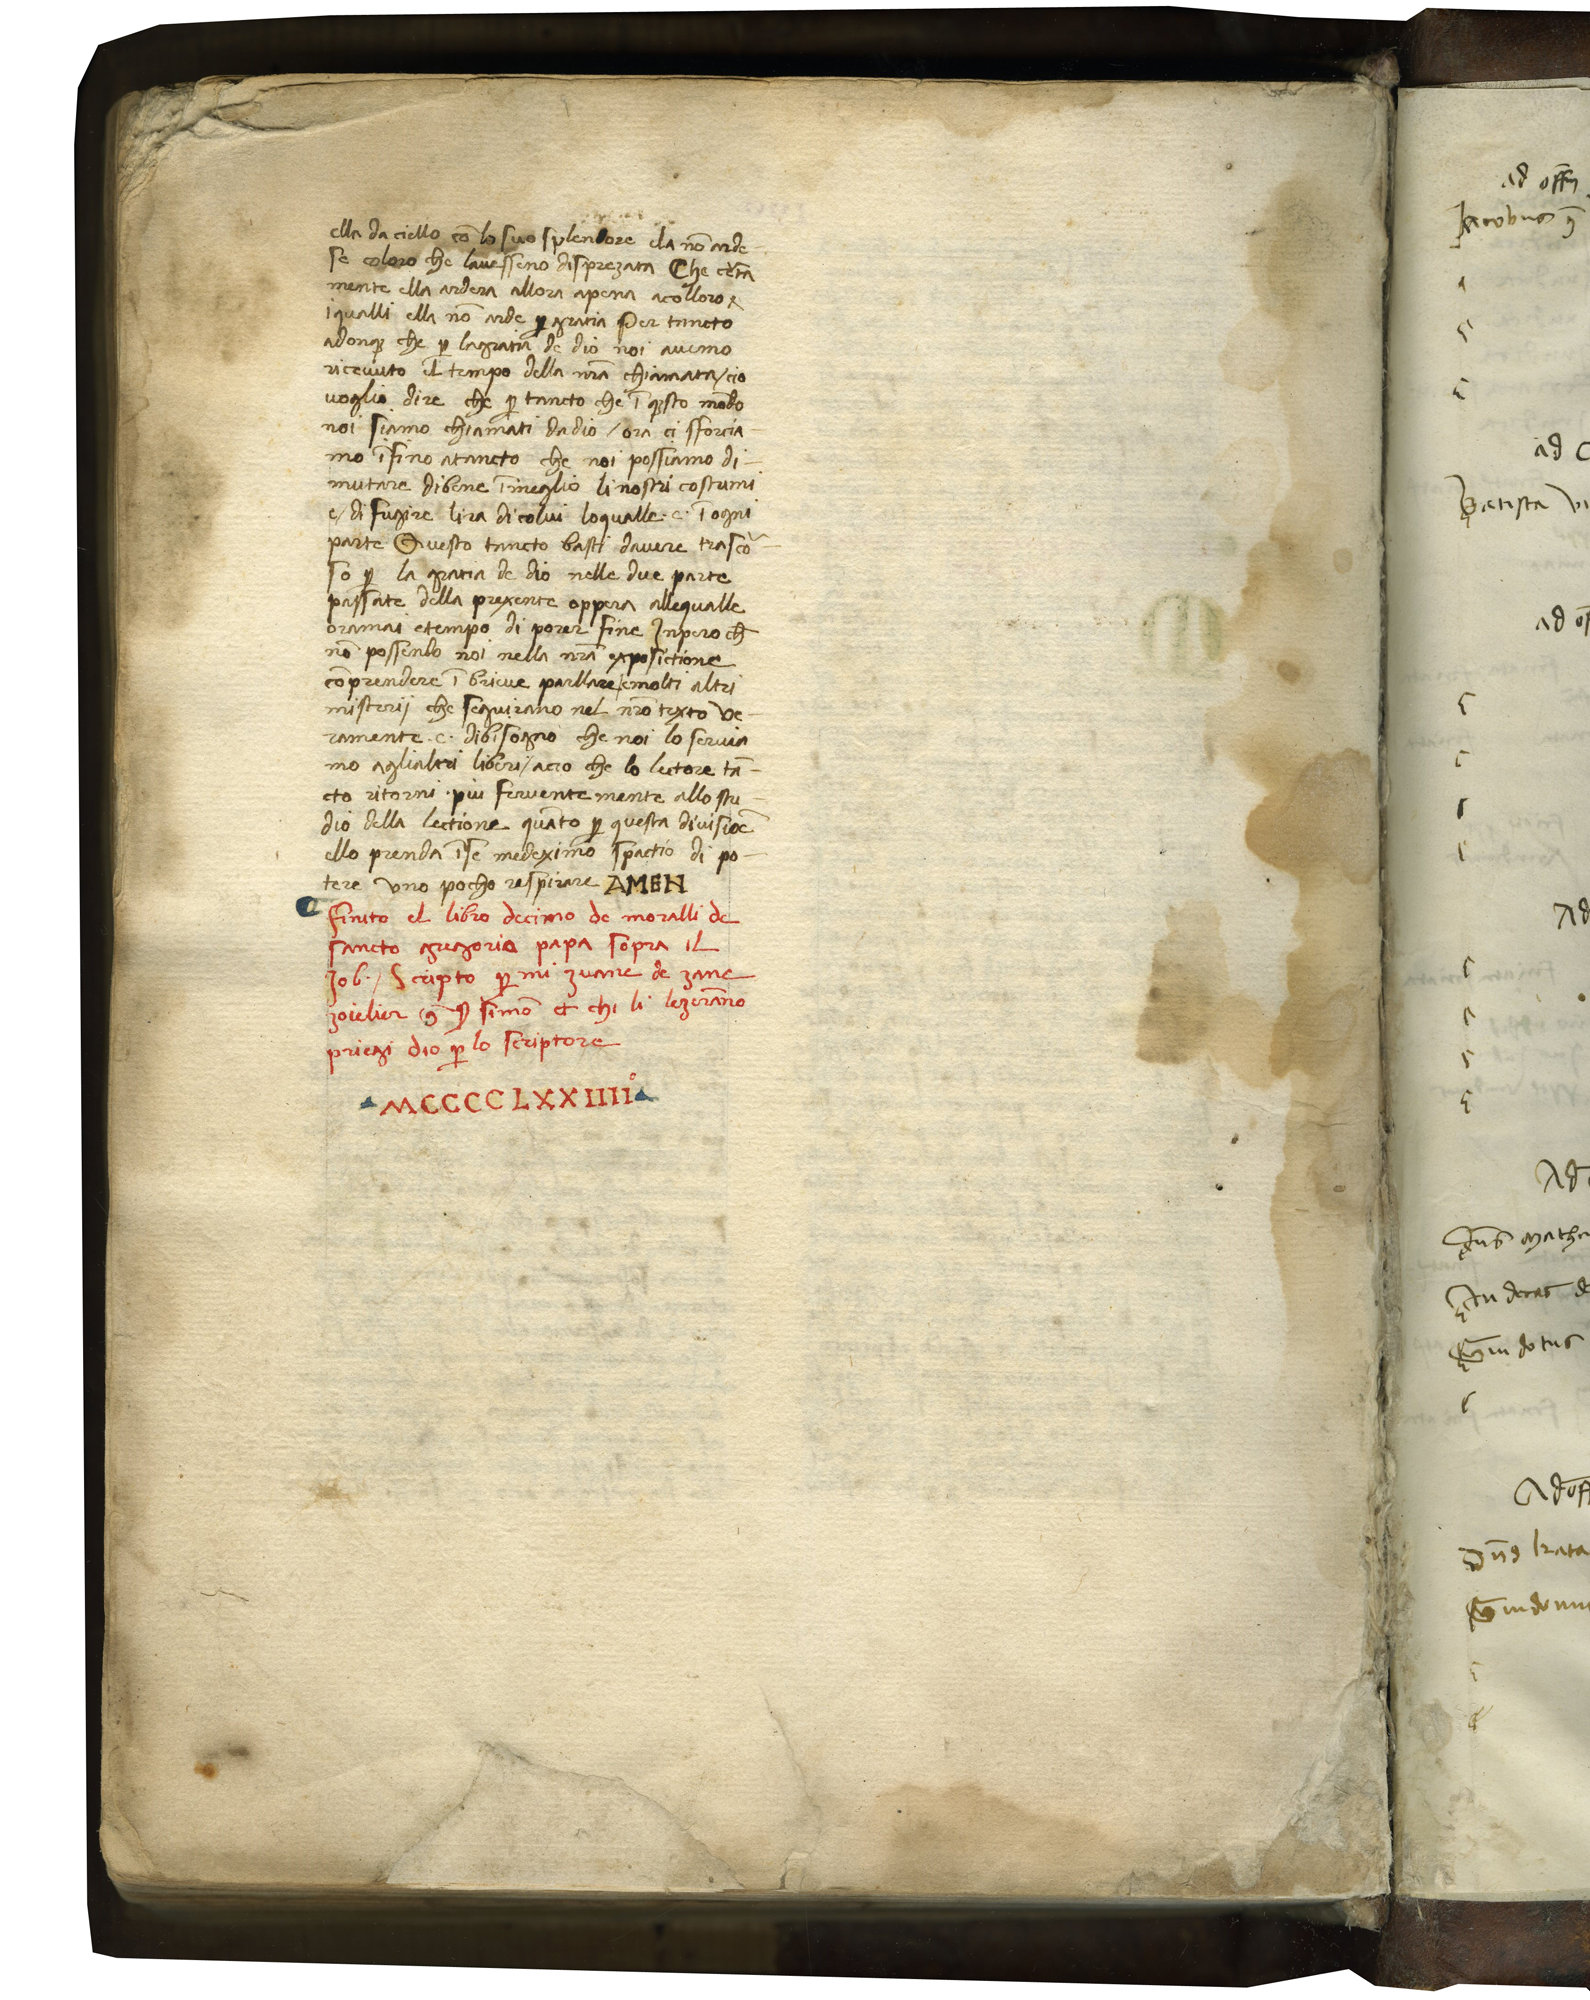 ella da ciello cō lo suo splendore ela nō arde
se coloro che lauesseno disprezata Che certa
mente ella ardera allora apena acolloro
iqualli ella nō arde ꝑ gratia Per tancto
adonqꝫ che ꝑ lagratia de dio noi auemo
riceuuto il tempo della nrā chiamata / cio
uoglio dire che ꝑ tancto che ī qsto mōdo
noi siamo chiamati dadio / ora ci sforcia
mo īfino atancto che noi possiamo di-
mutare dibene īmeglio li nostri costumi
e / di fugire lira di colui loqualle .e. ī ogni
parte Questo tancto basti dauere trascō-
so ꝑ la gratia de dio nelle due parte
passate della prexente oppera allequalle
oramai etempo di porer fine Inpero ch̄
nō possendo noi nella nrā expositione
cōprendere ī brieue parllare / emolti altri
misterij che seguirano nel nrō texto ve-
ramente .e. dibisogno che noi lo seruia
mo aglialtri liberi / acio che lo lectore tā-
cto ritorni piu feruente mente allo stu-
dio della lectione quāto ꝑ questa diuisiōe
ello prenda īse medeximo spactio di po-
tere vno pocho respirare AMEN
finito el libro decimo de moralli de
sancto gregorio papa sopra il
Job. / Scripto ꝑ mi zuane de zane
zoielier ꝯ simō et chi li lezerāno
priegi dio ꝑ lo scriptore
MCCCCLXXIIII°
ad offm̄
Jacobus ꝯ
ad
Batista
ad
Ad
Ad
Dn̄s mathe
Andreas d
Guidotus
Ad off
Dn̄s